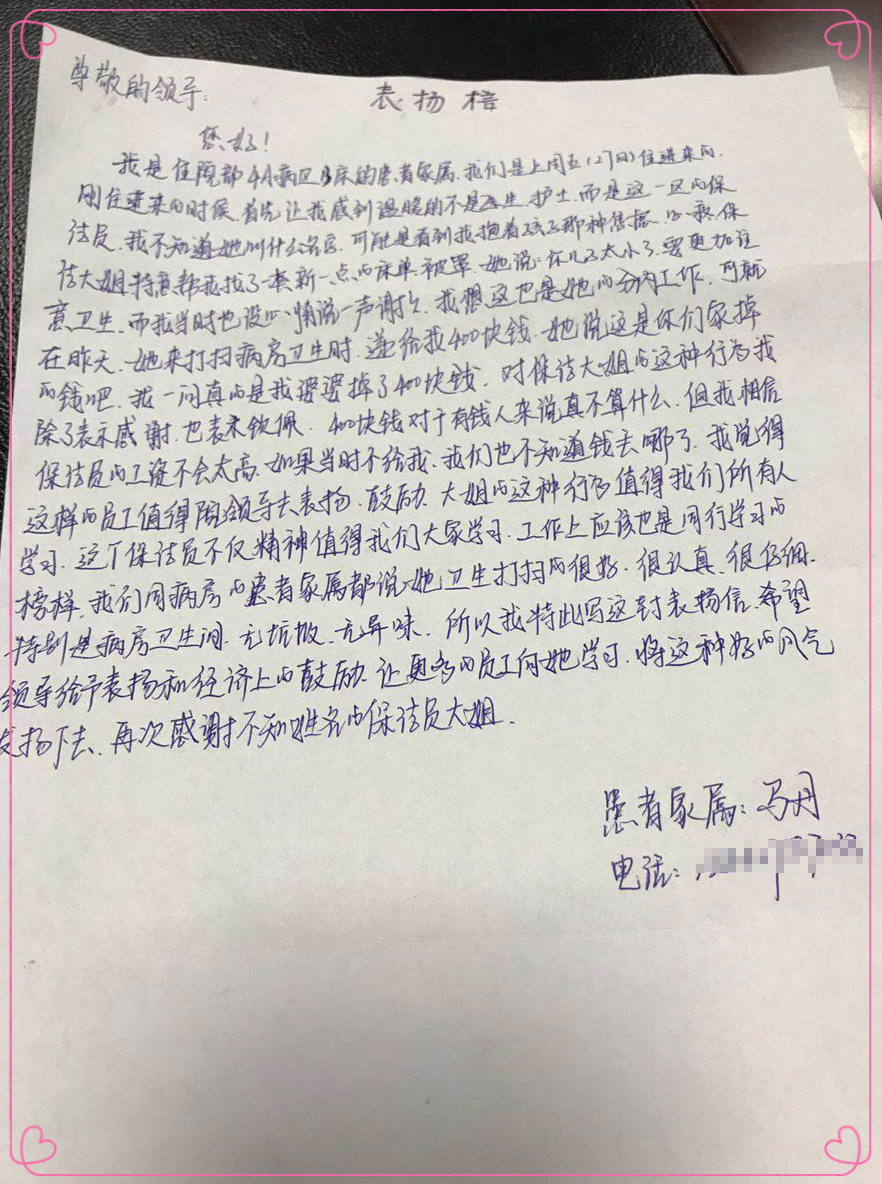 表扬榜
尊敬的领导:
您好!
我是住院部4A病区13床的患者家属.我们是上周五(27日)住进来的.
刚住进来的时候.首先让我感到温暖的不是医生.护士.而是这一区的保
洁员.我不知道她叫什么名字.可能是看到我抱着孩子那种焦振.心疼.保
洁大姐特意帮我找了一套新一点的床单.被罩.她说:你儿子太小了.要更加注
意卫生.而我当时也没心情说一声谢谢.我想这也是她的分内工作.可就
在昨天.她来打扫病房卫生时.递给我400块钱.她说这是你们家掉
的钱吧.我一问真的是我婆婆掉了400块钱.对保洁大姐的这种行为我
除了表示感谢.也表示钦佩.400块钱对于有钱人来说真不算什么.但我相信
保洁员的工资不会太高.如果当时不给我.我们也不知道钱去哪了.我觉得
这样的员工值得院领导去表扬.鼓励.大姐的这种行为值得我们所有人
学习.这个保洁员不仅精神值得我们大家学习.工作上应该也是同行学习的
榜样.我们同病房的患者家属都说她卫生打扫的很好.很认真.很仔细.
特别是病房卫生间.无垃圾.无异味.所以我特此写这封表扬信.希望
领导给予表扬和经济上的鼓励.让更多的员工向她学习.将这种好的风气
发扬下去.再次感谢不知姓名的保洁员大姐.
患者家属:马丹
电话: